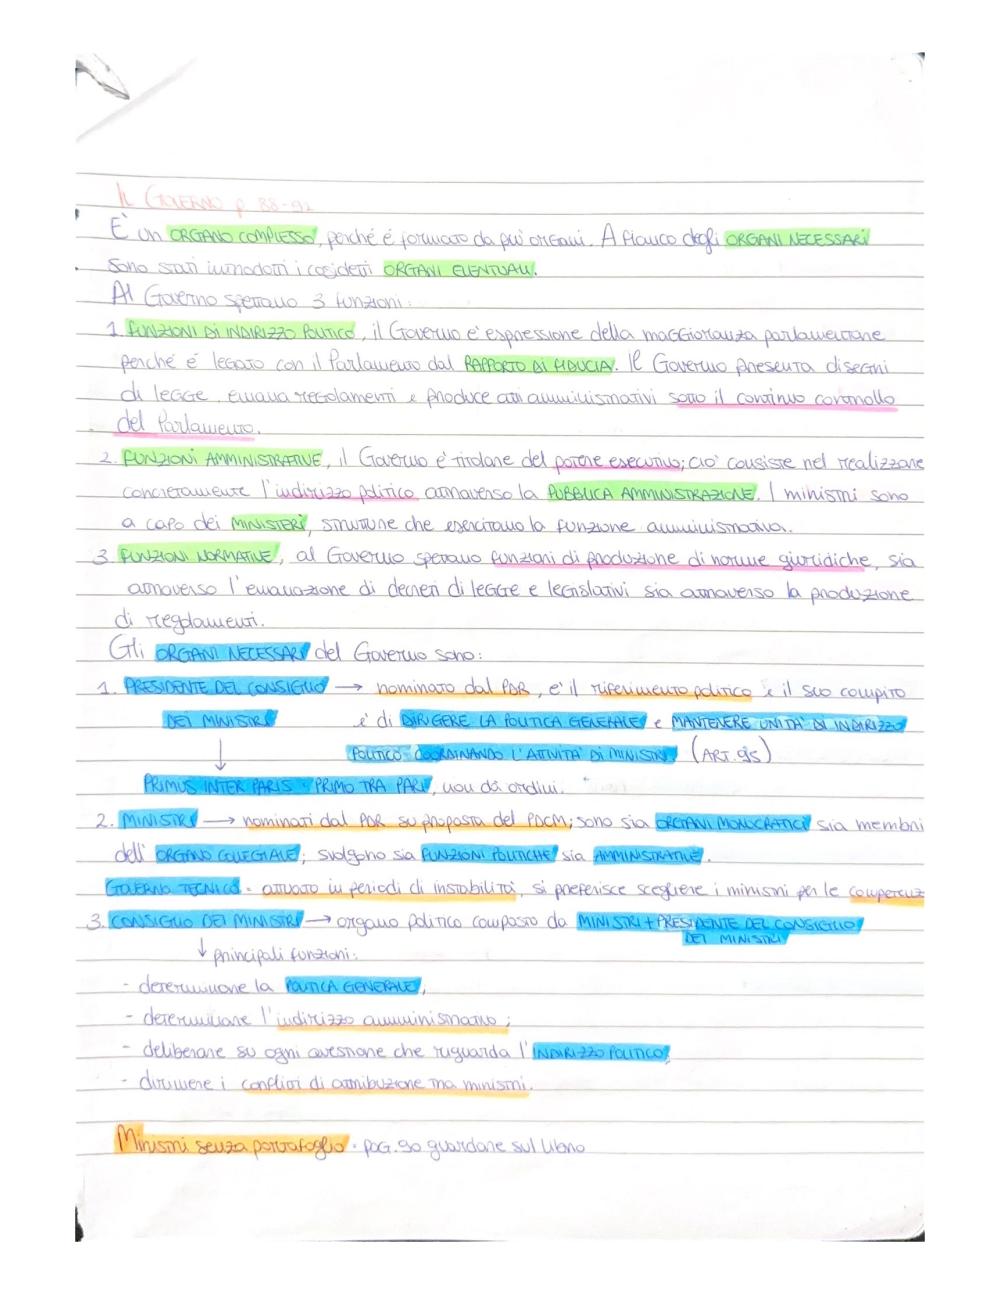 IL GOVERNO p 88-92
È un ORGANO COMPLESSO, perché è formato da più organi. A fianco degli ORGANI NECESSARI
sono stati introdotti i cosidetti ORGANI EVENTUALI.
Al Governo spettano 3 funzioni:
1. FUNZIONI DI INDIRIZZO POLITICO, il Governo è espressione della maggioranza parlamentare
perché è legato con il Parlamento dal RAPPORTO DI FIDUCIA. Il Governo presenta disegni
di legge, emana regolamenti e produce atti amministrativi sotto il continuo controllo
del Parlamento.
2. FUNZIONI AMMINISTRATIVE, il Governo è titolare del potere esecutivo; ciò consiste nel realizzare
concretamente l'indirizzo politico attraverso la PUBBLICA AMMINISTRAZIONE. I ministri sono
a capo dei MINISTERI, strutture che esercitano la funzione amministrativa.
3 FUNZIONI NORMATIVE, al Governo spettano funzioni di produzione di norme giuridiche, sia
attraverso l'emanazione di decreti di legge e legislativi sia attraverso la produzione
di regolamenti.
Gli ORGANI NECESSARI del Governo sono:
1. PRESIDENTE DEL CONSIGLIO → nominato dal PDR, è il riferimento politico e il suo compito
DEI MINISTRI è di DIRIGERE LA POLITICA GENERALE e MANTENERE UNITÀ DI INDIRIZZO
↓ POLITICO COORDINANDO L'ATTIVITÀ DI MINISTRI (ART. 95)
PRIMUS INTER PARIS • PRIMO TRA PARI, non dà ordini.
2. MINISTRI → nominati dal PDR su proposta del PDCM; sono sia ORGANI MONOCRATICI sia membri
dell'ORGANO COLLEGIALE; svolgono sia FUNZIONI POLITICHE sia AMMINISTRATIVE.
GOVERNO TECNICO = attuato in periodi di instabilità, si preferisce scegliere i ministri per le competenz
3. CONSIGLIO DEI MINISTRI → organo politico composto da MINISTRI + PRESIDENTE DEL CONSIGLIO
DEI MINISTRI
↓ principali funzioni:
- determinare la POLITICA GENERALE,
- determinare l'indirizzo amministrativo;
- deliberare su ogni questione che riguarda l'INDIRIZZO POLITICO;
- dirimere i conflitti di attribuzione tra ministri.
Ministri senza portafoglio • pag. 90 guardare sul libro